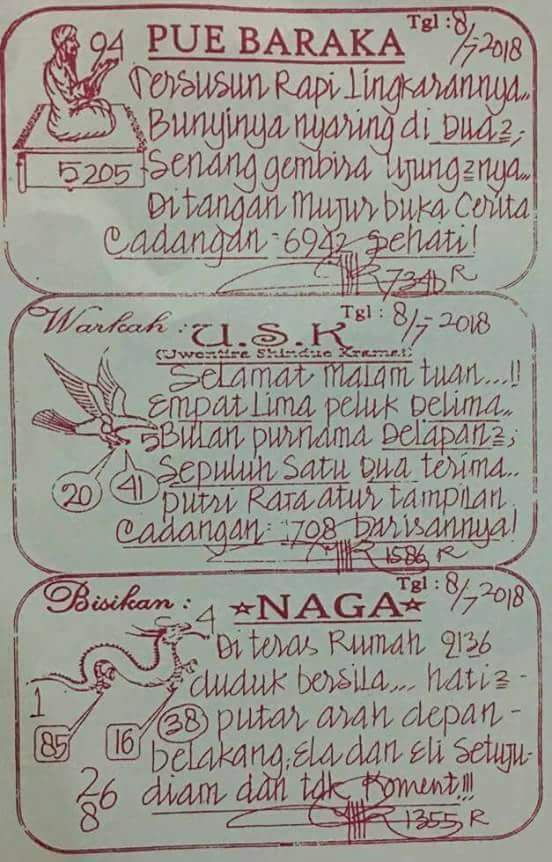 Tgl : 8/7-2018
94 PUE BARAKA
Tersusun Rapi Lingkarannya...
Bunyinya nyaring di Dua2;
5205 Senang gembira Ujung2nya...
Ditangan Mujur buka Cerita
Cadangan : 6942 Sehati!
R
Warkah : U.S.K Tgl : 8/7-2018
(Uwentira Shindue Kramat)
Selamat Malam tuan...!!
Empat Lima peluk Delima..
5 Bulan purnama Delapan2;
20 41 Sepuluh Satu Dua terima..
putri Rata atur tampilan
Cadangan : 708 barisannya!
1586 R
Bisikan : ☆NAGA☆ Tgl : 8/7-2018
4 Di teras Rumah 2136
1 duduk bersila... hati2 -
85 16 38 putar arah depan -
belakang; Ela dan Eli Setuju-
26 diam dan tdk Koment!!!
8 1355 R